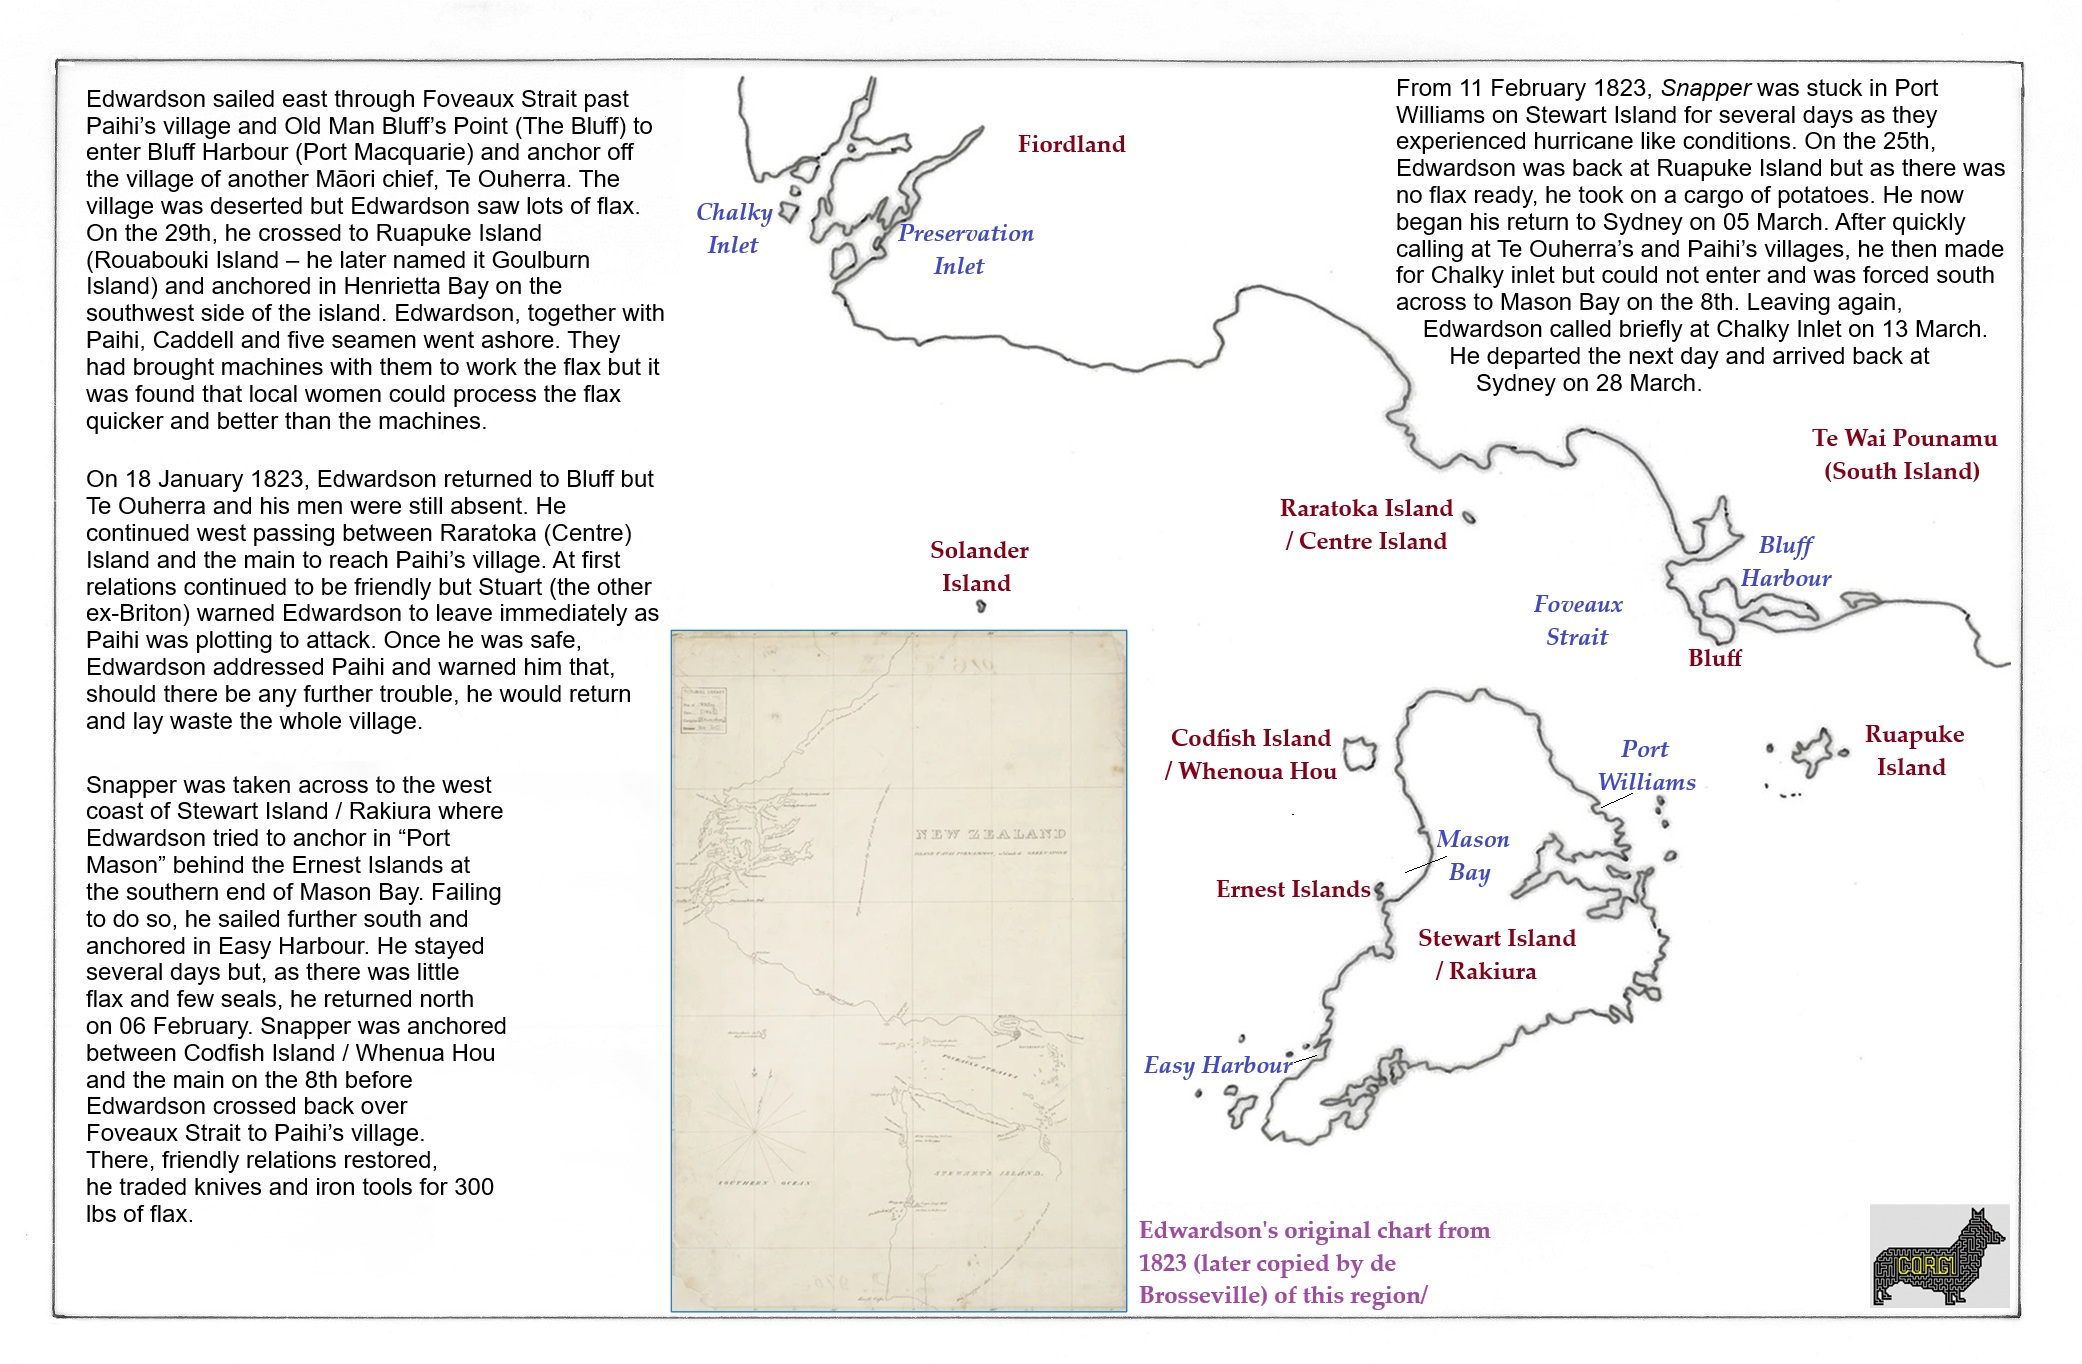 Edwardson sailed east through Foveaux Strait past
Paihi’s village and Old Man Bluff’s Point (The Bluff) to
enter Bluff Harbour (Port Macquarie) and anchor off
the village of another Māori chief, Te Ouherra. The
village was deserted but Edwardson saw lots of flax.
On the 29th, he crossed to Ruapuke Island
(Rouabouki Island – he later named it Goulburn
Island) and anchored in Henrietta Bay on the
southwest side of the island. Edwardson, together with
Paihi, Caddell and five seamen went ashore. They
had brought machines with them to work the flax but it
was found that local women could process the flax
quicker and better than the machines.
On 18 January 1823, Edwardson returned to Bluff but
Te Ouherra and his men were still absent. He
continued west passing between Raratoka (Centre)
Island and the main to reach Paihi’s village. At first
relations continued to be friendly but Stuart (the other
ex-Briton) warned Edwardson to leave immediately as
Paihi was plotting to attack. Once he was safe,
Edwardson addressed Paihi and warned him that,
should there be any further trouble, he would return
and lay waste the whole village.
Snapper was taken across to the west
coast of Stewart Island / Rakiura where
Edwardson tried to anchor in “Port
Mason” behind the Ernest Islands at
the southern end of Mason Bay. Failing
to do so, he sailed further south and
anchored in Easy Harbour. He stayed
several days but, as there was little
flax and few seals, he returned north
on 06 February. Snapper was anchored
between Codfish Island / Whenua Hou
and the main on the 8th before
Edwardson crossed back over
Foveaux Strait to Paihi’s village.
There, friendly relations restored,
he traded knives and iron tools for 300
lbs of flax.
From 11 February 1823, Snapper was stuck in Port
Williams on Stewart Island for several days as they
experienced hurricane like conditions. On the 25th,
Edwardson was back at Ruapuke Island but as there was
no flax ready, he took on a cargo of potatoes. He now
began his return to Sydney on 05 March. After quickly
calling at Te Ouherra’s and Paihi’s villages, he then made
for Chalky inlet but could not enter and was forced south
across to Mason Bay on the 8th. Leaving again,
Edwardson called briefly at Chalky Inlet on 13 March.
He departed the next day and arrived back at
Sydney on 28 March.
Fiordland
Chalky
Inlet
Preservation
Inlet
Te Wai Pounamu
(South Island)
Raratoka Island
/ Centre Island
Solander
Island
Bluff
Harbour
Foveaux
Strait
Bluff
Codfish Island
/ Whenoua Hou
Port
Williams
Ruapuke
Island
Mason
Bay
Ernest Islands
Stewart Island
/ Rakiura
Easy Harbour
NEW ZEALAND
FOVEAUX STRAITS
STEWART'S ISLAND.
SOUTHERN OCEAN
Edwardson's original chart from
1823 (later copied by de
Brosseville) of this region/
CORGI